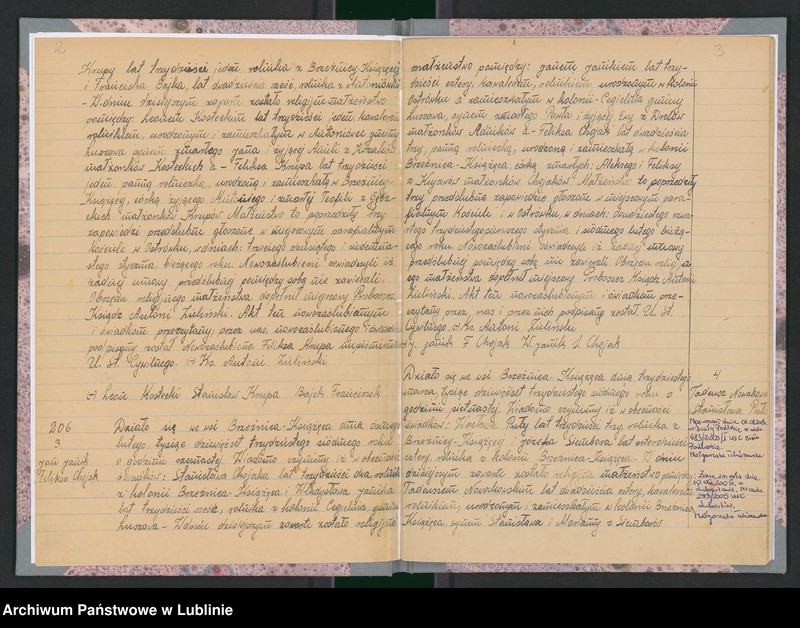 2
Krupy lat trzydzieści jeden, rolnika z Brzeźnicy-Książęcej
i Franciszka Bajka, lat dwadzieścia sześć, rolnika z Antoniówki
- W dniu dzisiejszym zawarte zostało religijne małżeństwo
pomiędzy: Leonem Kosteckim lat trzydzieści jeden, kawalerem
rolnikiem, urodzonym i zamieszkałym w Antoniówce gminy
Luszawa synem zmarłego Jana i żyjącej Anieli z
małżonków Kosteckich a - Feliksą Krupa lat trzydzieści
jeden, panną, rolniczką, urodzoną i zamieszkałą w Brzeźnicy-
Książęcej, córką żyjącego i zmarłej Teofili z
małżonków Krupów. Małżeństwo to poprzedziły trzy
zapowiedzi przedślubne głoszone w miejscowym parafialnym
kościele w Ostrówku, w dniach: trzeciego dziesiątego i siedemna-
stego stycznia, bieżącego roku. Nowozaślubieni oświadczyli iż
żadnej umowy przedślubnej pomiędzy sobą nie zawierali.
Obrzędu religijnego małżeństwa dopełnił miejscowy Proboszcz
Ksiądz Antoni Zieliński. Akt ten nowozaślubionym
i świadkom przeczytany, przez nas, nowozaślubionego i świadków
podpisany został. Nowozaślubiona Feliksa Krupa niepiśmienna
U. St. Cywilnego. -) Ks. Antoni Zieliński
-) Leon Kostecki Stanisław Krupa Bajek Franciszek
206
3.
Jan Janik
Feliksa Chojak
Działo się we wsi Brzeźnica-Książęca dnia ósmego
lutego, tysiąc dziewięćset trzydziestego siódmego roku
o godzinie szesnastej. Wiadomo czynimy iż w obecności
świadków: Stanisława Chojaka lat trzydzieści dwa, rolnika
z kolonii Brzeźnica-Książęca i Władysława Janika
lat trzydzieści sześć, rolnika z kolonii Cegielnia, gminy
Luszawa - W dniu dzisiejszym zawarte zostało religijne
3
małżeństwo pomiędzy: Janem Janikiem lat trzy-
dzieści cztery, kawalerem, rolnikiem, urodzonym w kolonii
Ostrówku a zamieszkałym w kolonii-Cegielnia gminy
Luszawa, synem zmarłego Pawła i żyjącej Ewy z
małżonków Janików a - Feliksą Chojak lat dwadzieścia
trzy, panną, rolniczką, urodzoną i zamieszkałą w kolonii
Brzeźnica-Książęca, córką zmarłych: Aleksego i Feliksy
z małżonków Chojaków. Małżeństwo to poprzedziły
trzy przedślubne zapowiedzie głoszone w miejscowym para-
fialnym Kościele i w Ostrówku, w dniach: dwudziestego czwar-
tego trzydziestegopierwszego stycznia i siódmego lutego bieżą-
cego roku. Nowozaślubieni oświadczyli iż żadnej umowy
przedślubnej pomiędzy sobą nie zawierali. Obrzędu religijn-
ego małżeństwa dopełnił miejscowy Proboszcz Ksiądz Antoni
Zieliński. Akt ten nowozaślubionym i świadkom prze-
czytany przez nas i przez nich podpisany został. U. St.
Cywilnego. -) Ks. Antoni Zieliński
-) J. Janik F. Chojak W. Janik S. Chojak
Działo się we wsi Brzeźnica-Książęca dnia trzydziestego
marca, tysiąc dziewięćset trzydziestego siódmego roku o
godzinie piętnastej. Wiadomo czynimy iż w obecności
świadków: Wacława Puty lat trzydzieści trzy, rolnika z
Brzeźnicy-Książęcej i Józefa Siembora lat czterdzieści
cztery, rolnika z kolonii Brzeźnica-Książęca - W dniu
dzisiejszym zawarte zostało religijne małżeństwo pomiędzy:
Tadeuszem Nowakowskim lat dwadzieścia cztery, kawalerem
rolnikiem, urodzonym i zamieszkałym w kolonii Brzeźnica
Książęca, synem Stanisława i Marianny z Siemborów
4
Tadeusz Nowakow
Stanisława Puta
Archiwum Państwowe w Lublinie